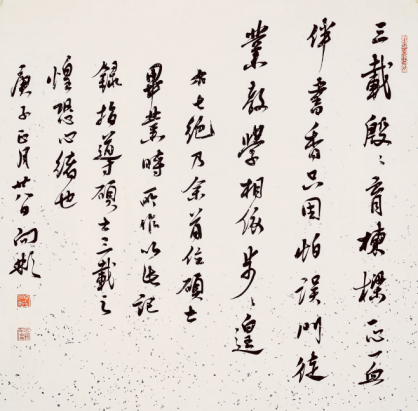 三載殷〻育棟樑一正一血
伴書香只因怕誤門徒
業教學相依步〻遑
右七絶乃余首位碩士
畢業時所作以誌記
録指導碩士三載之
惶恐心緒也
庚子正月廿八日向彬